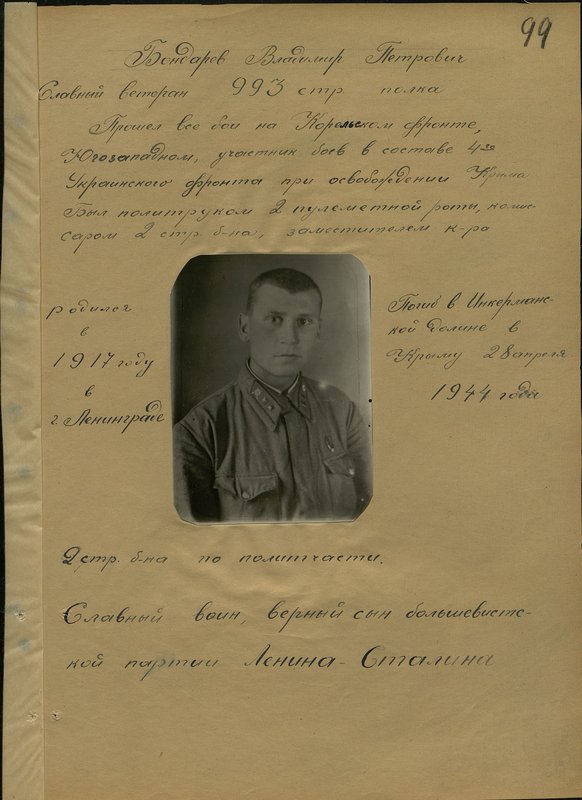 99
Бондарев Владимир Петрович
Славный ветеран 993 стр. полка
Прошел все бои на Корельском фронте,
Югозападном, участник боев в составе 4го
Украинского фронта при освобождении Крыма
Был политруком 2 пулеметной роты, комис-
саром 2 стр. б-на, заместителем к-ра
родился
в
1917 году
в
г. Ленинграде
Погиб в Инкерманс-
кой долине в
Крыму 28 апреля
1944 года
2 стр. б-на по политчасти.
Славный воин, верный сын большевистс-
кой партии Ленина-Сталина